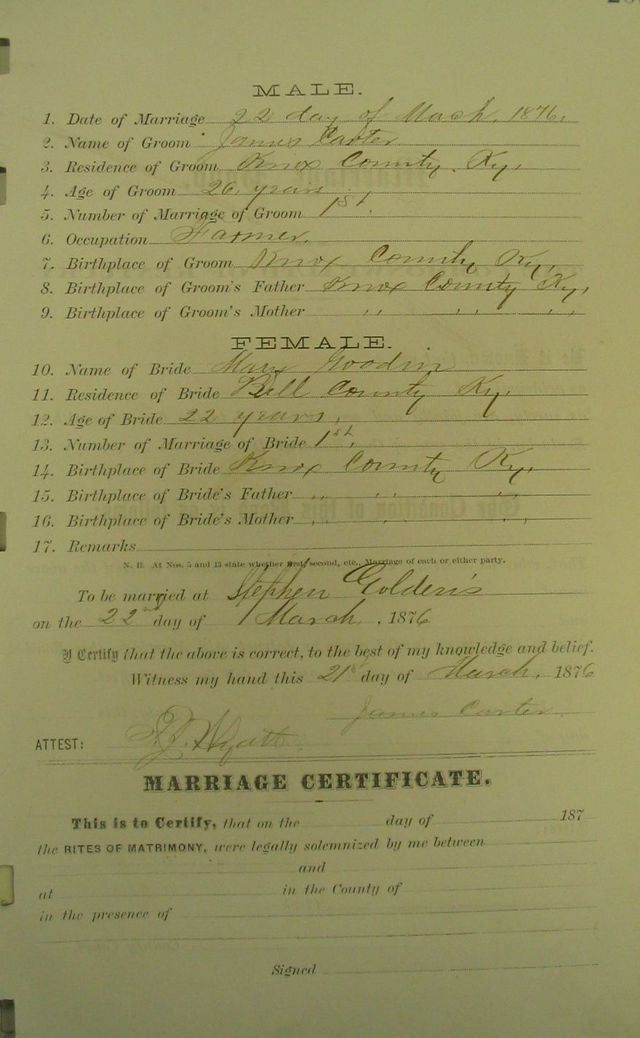 MALE.
1. Date of Marriage 22 day of Mach, 1876.
2. Name of Groom James Carter
3. Residence of Groom Knox County, Ky,
4. Age of Groom 26 years
5. Number of Marriage of Groom 1st.
6. Occupation Farmer.
7. Birthplace of Groom Knox County, Ky,
8. Birthplace of Groom's Father Knox County Ky,
9. Birthplace of Groom's Mother " " " "
FEMALE.
10. Name of Bride Mary Goodin
11. Residence of Bride Bell County Ky.
12. Age of Bride 22 years.
13. Number of Marriage of Bride 1st.
14. Birthplace of Bride Knox County Ky,
15. Birthplace of Bride's Father " " "
16. Birthplace of Bride's Mother " " "
17. Remarks
N. B. At Nos. 5 and 13 state whether first, second, etc., Marriage of each or either party.
To be married at Stephen Golden's
on the 22nd day of March, 1876
I Certify that the above is correct, to the best of my knowledge and belief.
Witness my hand this 21st day of March, 1876
James Carter
ATTEST: Wyatt
MARRIAGE CERTIFICATE.
This is to Certify, that on the day of 187
the RITES OF MATRIMONY, were legally solemnized by me between
and
at in the County of
in the presence of
Signed